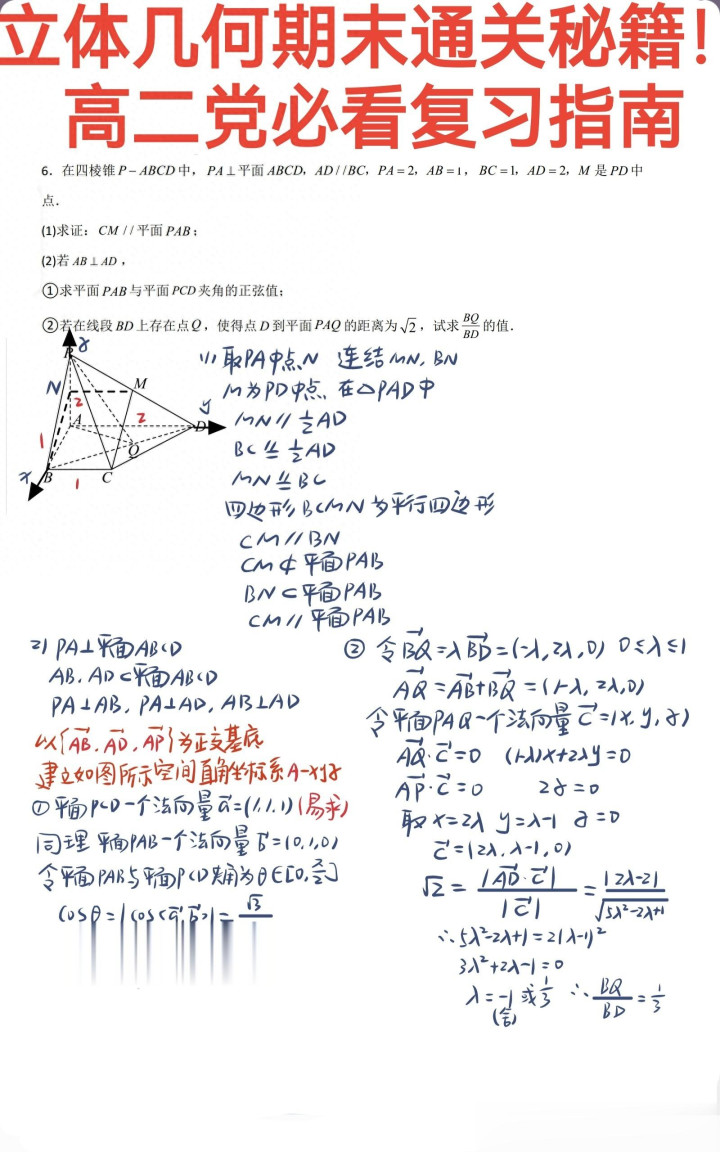 立体几何期末通关秘籍!
高二党必看复习指南
6. 在四棱锥 P-ABCD 中, PA⊥平面 ABCD, AD//BC, PA=2, AB=1, BC=1, AD=2, M 是 PD 中
点.
(1)求证: CM//平面 PAB;
(2)若 AB⊥AD,
①求平面 PAB 与平面 PCD 夹角的正弦值;
②若在线段 BD 上存在点 Q, 使得点 D 到平面 PAQ 的距离为 √2, 试求 BQ/BD 的值.
P z
N M
2 2 y
A D
1 Q
x B 1 C
(1) 取PA中点N 连结MN, BN
M为PD中点 在△PAD中
MN // 1/2 AD
BC ∥= 1/2 AD
MN ∥= BC
四边形BCMN为平行四边形
CM//BN
CM⊄平面PAB
BN⊂平面PAB
CM//平面PAB
2) PA⊥平面ABCD
AB, AD⊂平面ABCD
PA⊥AB, PA⊥AD, AB⊥AD
以{AB, AD, AP}为正交基底
建立如图所示空间直角坐标系A-xyz
①平面PCD一个法向量a=(1,1,1)(易求)
同理 平面PAB一个法向量b=(0,1,0)
令平面PAB与平面PCD夹角为θ∈[0,π/2]
cosθ=|cos<a,b>|=√3
② 令BQ=λBD=(-λ,2λ,0) 0≤λ≤1
AQ=AB+BQ=(1-λ,2λ,0)
令平面PAQ一个法向量c=(x,y,z)
AQ·c=0 (1-λ)x+2λy=0
AP·c=0 2z=0
取x=2λ y=λ-1 z=0
c=(2λ,λ-1,0)
√2=|AD·c|/|c|=|2λ-2|/√(5λ²-2λ+1)
∴5λ²-2λ+1=2(λ-1)²
3λ²+2λ-1=0
λ=-1或1/3 ∴BQ/BD=1/3
(舍)